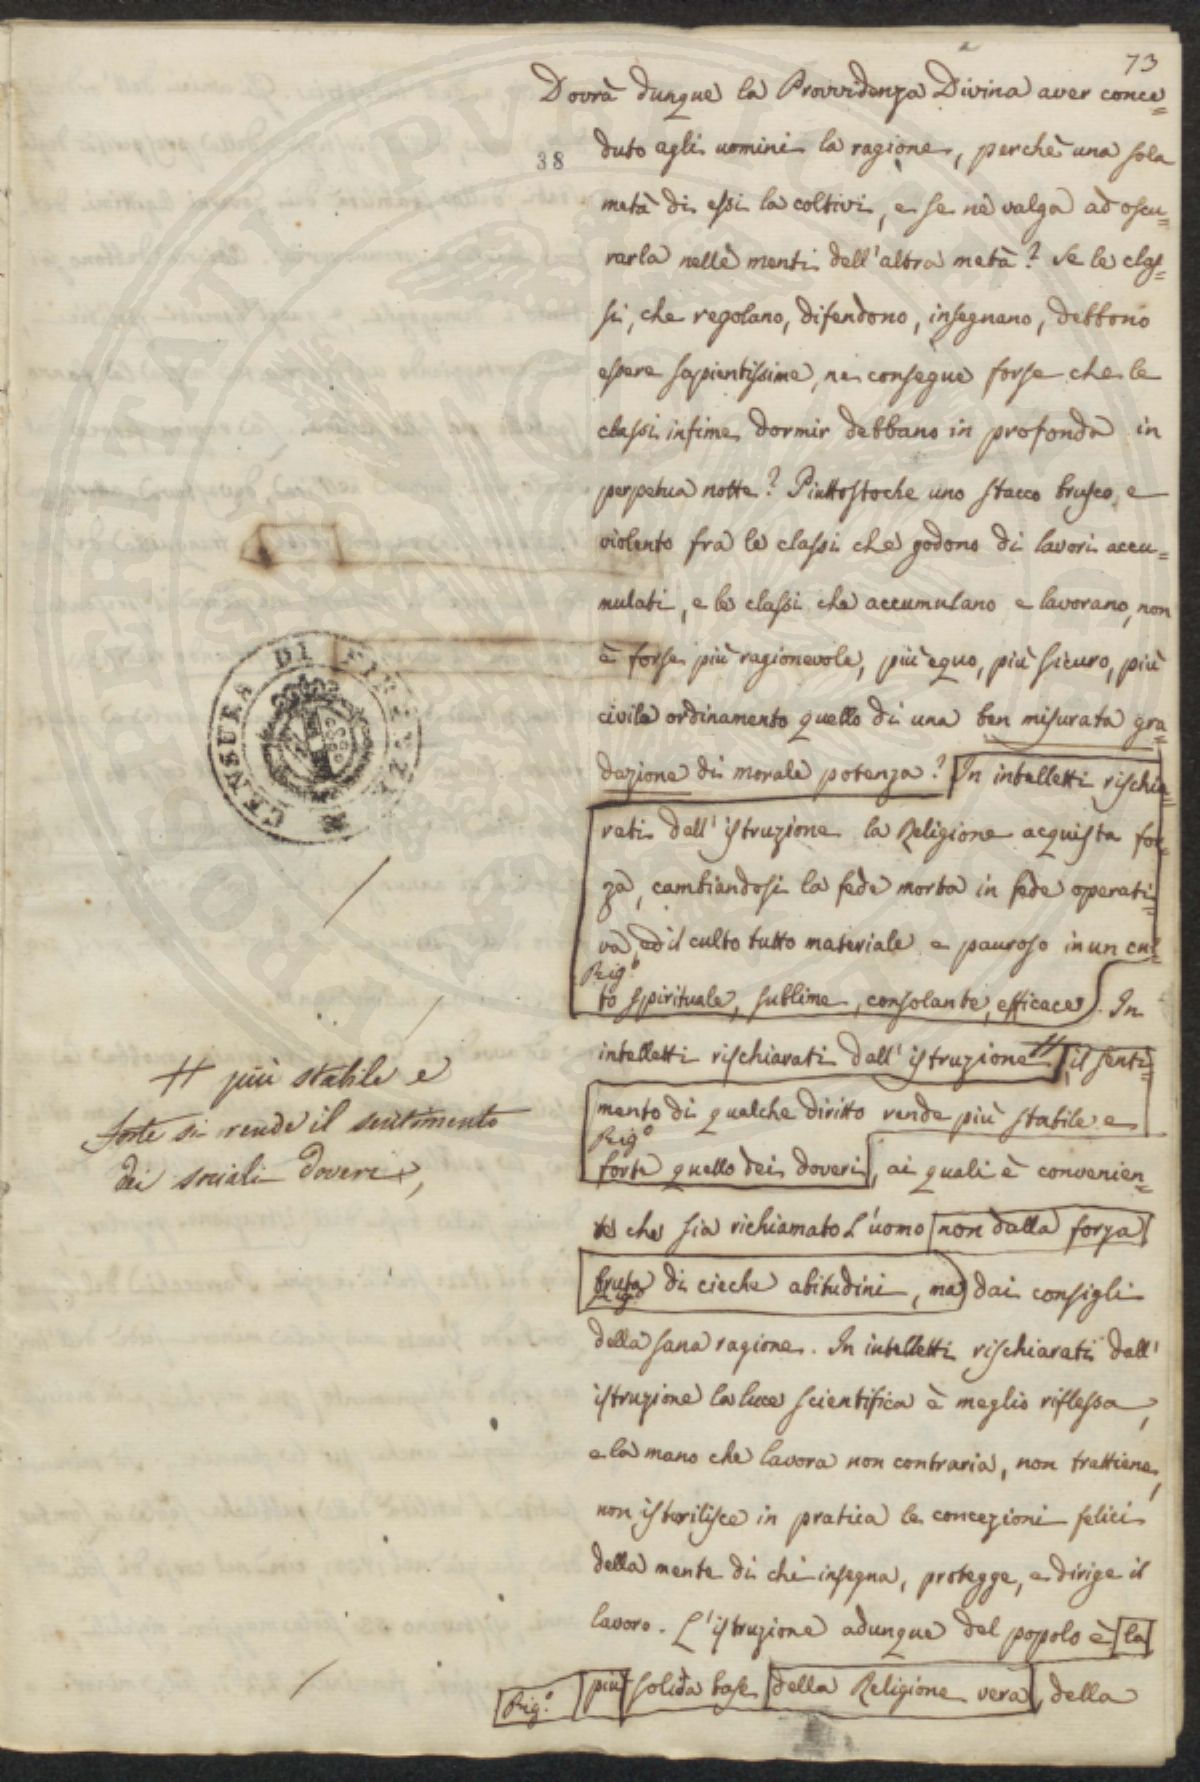 73
Dovrà dunque la Provvidenza Divina aver conce=
38
duto agli uomini la ragione, perchè una sola
metà di essi la coltivi, e se ne valga ad oscu=
rarla nelle menti dell'altra metà? Se le clas=
si, che regolano, difendono, insegnano, debbono
essere sapientissime, ne consegue forse che le
classi infime dormir debbano in profonda in
perpetua notte? Piuttostoche uno stacco brusco, e
violento fra le classi che godono di lavori accu=
mulati, e le classi che accumulano e lavorano, non
è forse più ragionevole, più equo, più sicuro, più
civile ordinamento quello di una ben misurata gra=
dazione di morale potenza? In intelletti rischia=
rati dall'istruzione la Religione acquista for=
za, cambiandosi la fede morta in fede operati=
va, ed il culto tutto materiale e pauroso in un cul=
Rig.°
to spirituale, sublime, consolante, efficace. In
intelletti rischiarati dall'istruzione # il senti=
mento di qualche diritto rende più stabile e
Rig.°
forte quello dei doveri, ai quali è convenien=
te che sia richiamato l'uomo non dalla forza
bruta di cieche abitudini, ma dai consigli
Rig.°
della sana ragione. In intelletti rischiarati dall'
istruzione la luce scientifica è meglio riflessa,
e la mano che lavora non contraria, non trattiene,
non isterilisce in pratica le concezioni felici
della mente di chi insegna, protegge, e dirige il
lavoro. L'istruzione adunque del popolo è la
Rig.° più solida base della Religione vera, della
# più stabile e
forte si rende il sentimento
dei sociali doveri,
CENSURA DI FIRENZE